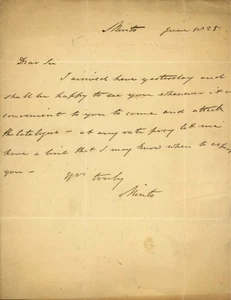 Minto June 10 25
Dear Sir
I arrived here yesterday and
shall be happy to see you whenever it is
convenient to you to come and attack
the Catalogue – at any rate pray let me
have a line that I may know when to expect
you –
Yrs truly
Minto